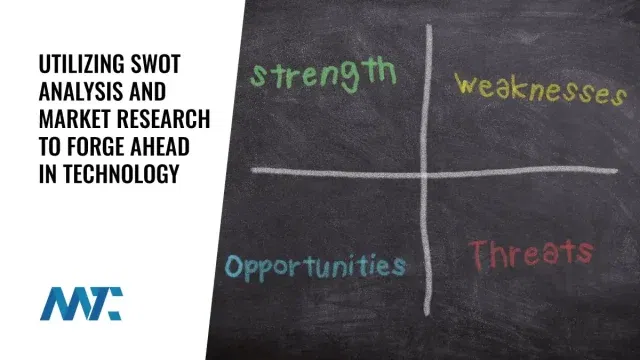 UTILIZING SWOT
ANALYSIS AND
MARKET RESEARCH
TO FORGE AHEAD
IN TECHNOLOGY
strength
weaknesses
Opportunities
Threats
MTC